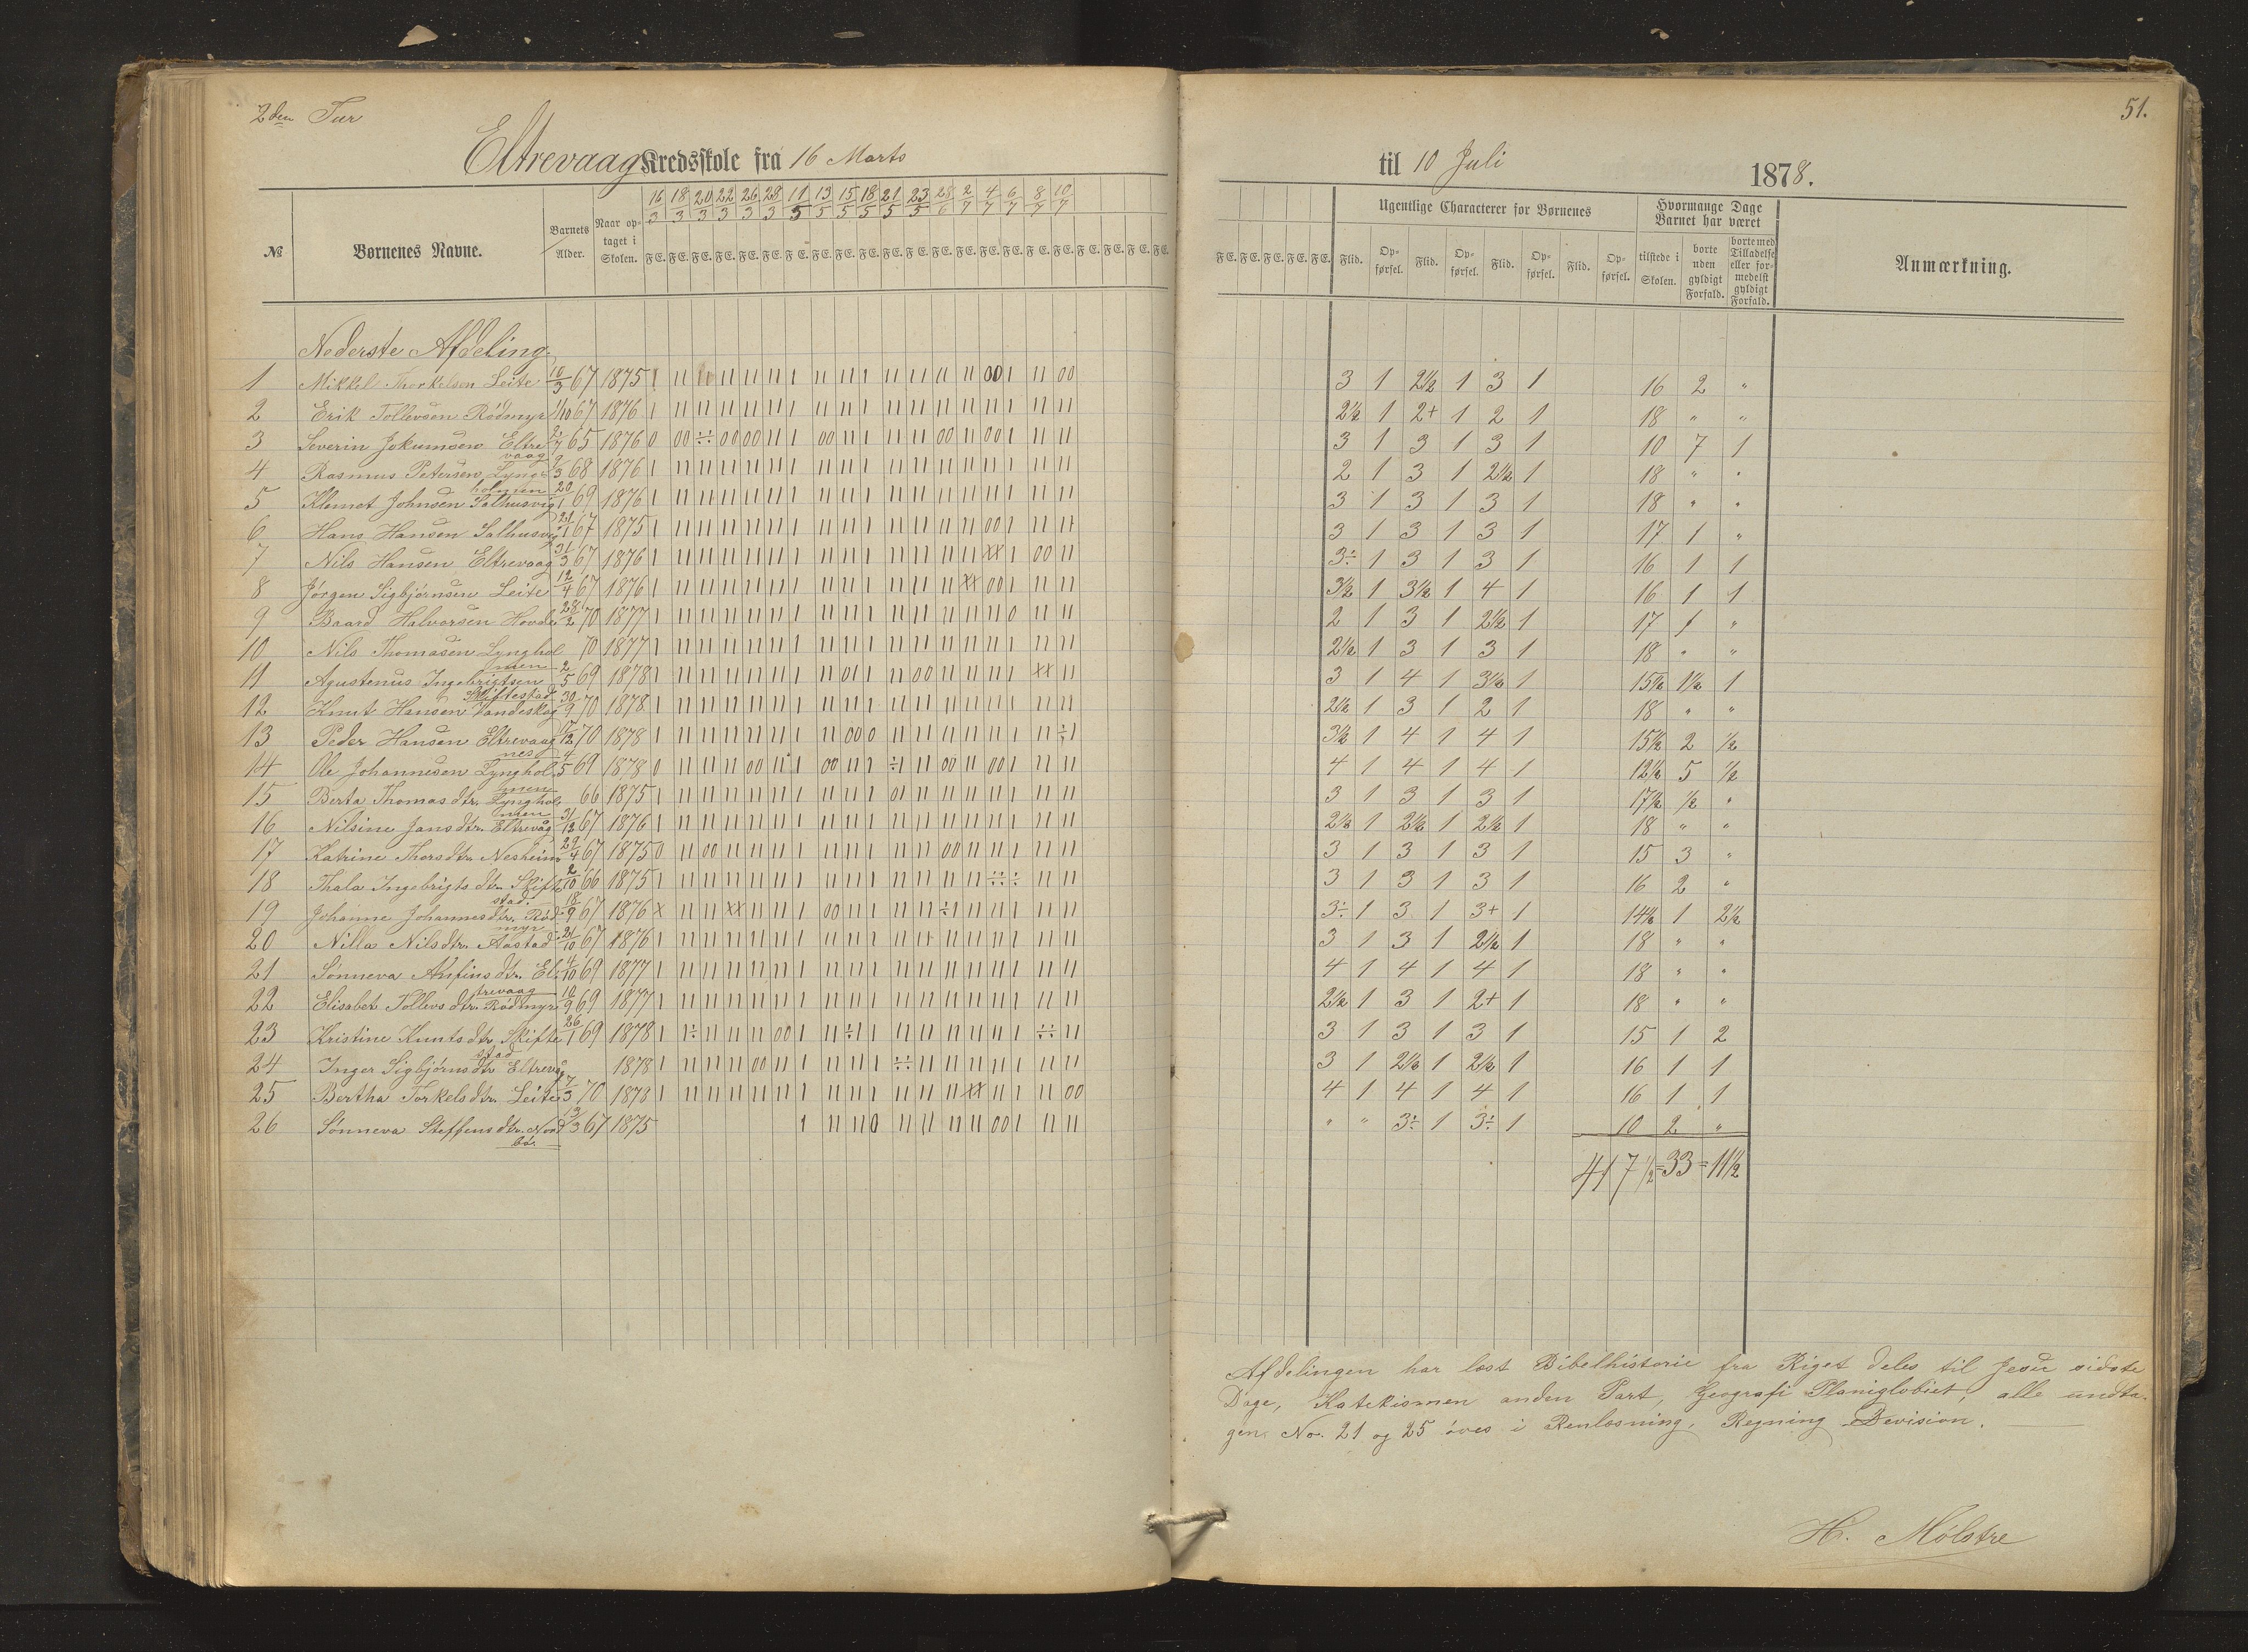 2den Tur
51.
Eltrevaag Kredsskole fra 16 Marts til 10 Juli 1878.
№ Børnenes Navne. Barnets Alder. Naar optaget i Skolen. 16/3 18/3 20/3 22/3 26/3 28/3 11/5 13/5 15/5 18/5 21/5 23/5 28/6 2/7 4/7 6/7 8/7 10/7
F E. F E. F E. F E. F E. F E. F E. F E. F E. F E. F E. F E. F E. F E. F E. F E. F E. F E. F E. F E. F E. F E.
Ugentlige Characterer for Børnenes
Flid. Opførsel. Flid. Opførsel. Flid. Opførsel. Flid. Opførsel.
Hvormange Dage Barnet har været
tilstede i Skolen. borte uden gyldigt Forfald. borte med Tilladelse eller formedelst gyldigt Forfald.
Anmærkning.
Nederste Afdeling.
1 Mikkel Thorkelsen Leite 10/3 67 1875 3 1 2½ 1 3 1 16 2 "
2 Erik Tollevsen Rødmyr 1/10 67 1876 2½ 1 2+ 1 2 1 18 " "
3 Severin Jokumsen Eltrevaag 2/7 65 1876 3 1 3 1 3 1 10 7 1
4 Rasmus Petersen Lyngholmen 9/3 68 1876 2 1 3 1 2½ 1 18 " "
5 Klemet Johnsen Salhusvig 20/1 69 1876 3 1 3 1 3 1 18 " "
6 Hans Hansen Salhusvig 21/1 67 1875 3 1 3 1 3 1 17 1 "
7 Nils Hansen Eltrevaag 31/3 67 1876 3÷ 1 3 1 3 1 16 1 1
8 Jørgen Sigbjørnsen Leite 12/4 67 1876 3½ 1 3½ 1 4 1 16 1 1
9 Baard Halvorsen Hovde 28/2 70 1877 2 1 3 1 2½ 1 17 1 "
10 Nils Thomasen Lyngholmen 70 1877 2½ 1 3 1 3 1 18 " "
11 Agustenus Ingebrigtsen Skiftestad 2/5 69 1878 3 1 4 1 3½ 1 15½ 1½ 1
12 Knut Hansen Vandeskog 30/9 70 1878 2½ 1 3 1 2 1 18 " "
13 Peder Hansen Eltrevaagnes 17/12 70 1878 3½ 1 4 1 4 1 15½ 2 ½
14 Ole Johannesen Lyngholmen 4/5 69 1878 4 1 4 1 4 1 12½ 5 ½
15 Berta Thomasdtr. Lyngholmen 66 1875 3 1 3 1 3 1 17½ ½ "
16 Nilsine Jansdtr. Eltrevåg 31/12 67 1876 2½ 1 2½ 1 2½ 1 18 " "
17 Katrine Thorsdtr. Nesheim 22/4 67 1875 3 1 3 1 3 1 15 3 "
18 Thala Ingebrigtsdtr. Skiftestad. 2/10 66 1875 3 1 3 1 3 1 16 2 "
19 Johanne Johannesdtr. Rødmyr 18/9 67 1876 3÷ 1 3 1 3+ 1 14½ 1 2½
20 Nilla Nilsdtr. Aastad 21/10 67 1876 3 1 3 1 2½ 1 18 " "
21 Sønneva Anfinsdtr. Eltrevaag 4/10 69 1877 4 1 4 1 4 1 18 " "
22 Elisabet Tollevsdtr. Rødmyr 10/9 69 1877 2½ 1 3 1 2+ 1 18 " "
23 Kristine Knutsdtr. Skiftestad 26/1 69 1878 3 1 3 1 3 1 15 1 2
24 Inger Sigbjørnsdtr Eltrevåg 1878 3 1 2½ 1 2½ 1 16 1 1
25 Bertha Torkelsdtr. Leite 7/3 70 1878 4 1 4 1 4 1 16 1 1
26 Sønneva Steffensdtr. Nordbø. 13/3 67 1875 " " 3÷ 1 3÷ 1 10 2 "
417½ = 33 = 11½
Afdelingen har læst Bibelhistorie fra Riget deles til Jesu sidste
Dage, Katekismen anden Part, Geografi Planiglobiet, alle undta-
gen No. 21 og 25 øves i Renlæsning, Regning Devision.
H. Mølstre